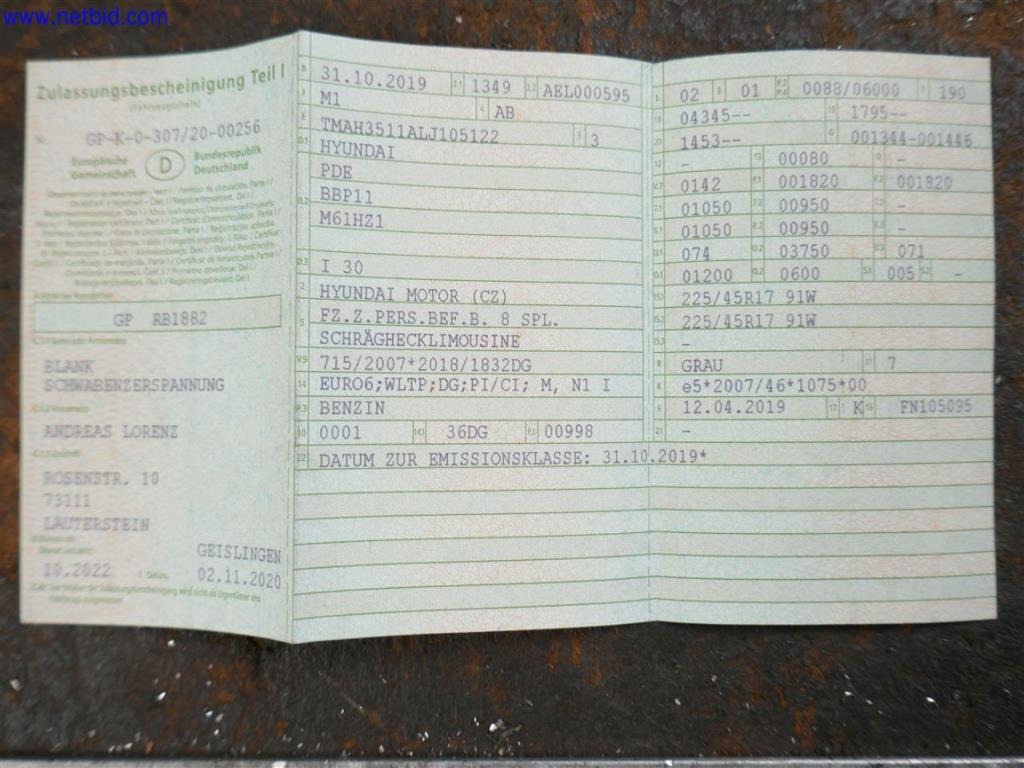 www.netbid.com
Zulassungsbescheinigung Teil I
(Fahrzeugschein)
Nr. GP-K-0-307/20-00256
Europäische Gemeinschaft D Bundesrepublik Deutschland
GP RB1882
BLANK
SCHWABENZERSPANNUNG
ANDREAS LORENZ
ROSENSTR. 10
73111
LAUTERSTEIN
GEISLINGEN
10.2022 02.11.2020
B 31.10.2019 2.1 1349 2.2 AEL000595
J M1 4 AB
E TMAH3511ALJ105122 3 3
D.1 HYUNDAI
PDE
D.2 BBP11
M61HZ1
D.3 I 30
2 HYUNDAI MOTOR (CZ)
5 FZ.Z.PERS.BEF.B. 8 SPL.
SCHRÄGHECKLIMOUSINE
V.9 715/2007*2018/1832DG
14 EURO6;WLTP;DG;PI/CI; M, N1 I
P.3 BENZIN
10 0001 14.1 36DG P.1 00998
22 DATUM ZUR EMISSIONSKLASSE: 31.10.2019*
L 02 9 01 P.2 P.4 0088/06000 T 190
18 04345-- 19 1795--
20 1453-- G 001344-001446
12 - 13 00080 Q -
V.7 0142 F.1 001820 F.2 001820
7.1 01050 7.2 00950 7.3 -
8.1 01050 8.2 00950 8.3 -
U.1 074 U.2 03750 U.3 071
O.1 01200 O.2 0600 S.1 005 S.2 -
15.1 225/45R17 91W
15.2 225/45R17 91W
15.3 -
R GRAU 11 7
K e5*2007/46*1075*00
6 12.04.2019 17 K 16 FN105095
21 -